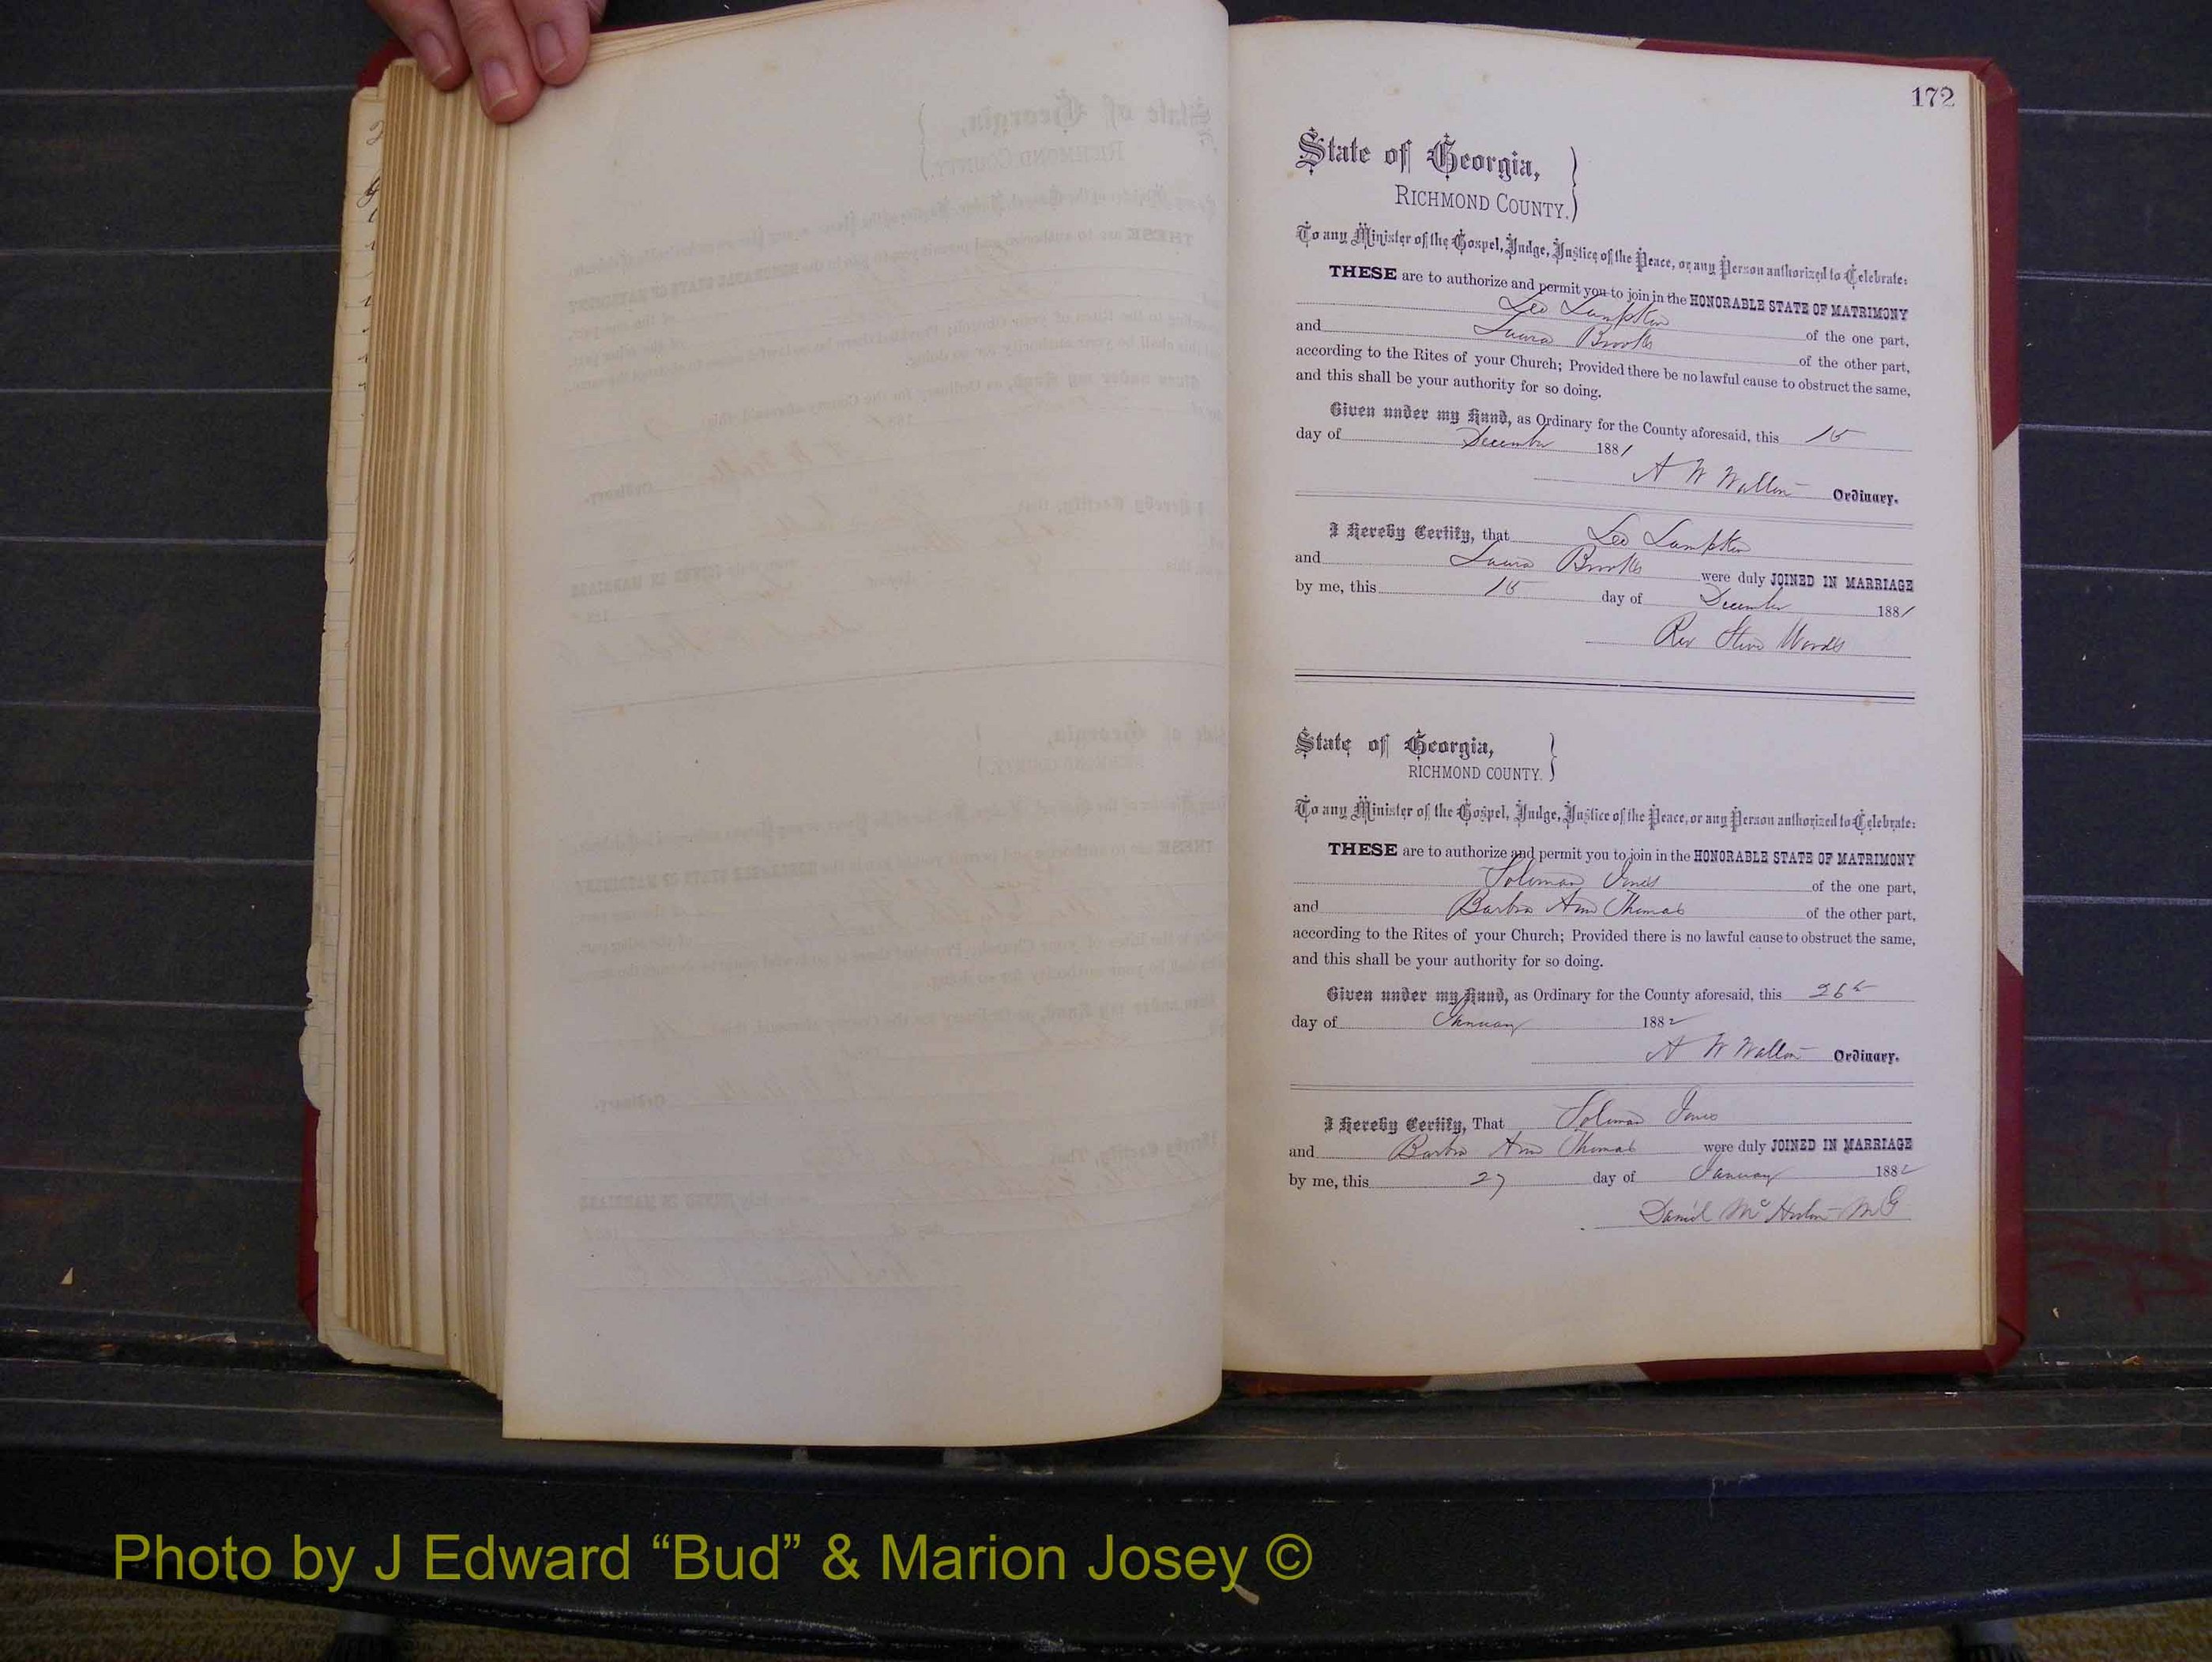 172
State of Georgia,
RICHMOND COUNTY.
To any Minister of the Gospel, Judge, Justice of the Peace, or any Person authorized to Celebrate:
THESE are to authorize and permit you to join in the HONORABLE STATE OF MATRIMONY
Leo Lumpkin of the one part,
and Laura Brooks of the other part,
according to the Rites of your Church; Provided there be no lawful cause to obstruct the same,
and this shall be your authority for so doing.
Given under my Hand, as Ordinary for the County aforesaid, this 15
day of December 1881
A W Walton Ordinary.
I Hereby Certify, that Leo Lumpkin
and Laura Brooks were duly JOINED IN MARRIAGE
by me, this 15 day of December 1881
Rev Steve Woods
State of Georgia,
RICHMOND COUNTY.
To any Minister of the Gospel, Judge, Justice of the Peace, or any Person authorized to Celebrate:
THESE are to authorize and permit you to join in the HONORABLE STATE OF MATRIMONY
Soloman Jones of the one part,
and Barbra Ann Thomas of the other part,
according to the Rites of your Church; Provided there is no lawful cause to obstruct the same,
and this shall be your authority for so doing.
Given under my Hand, as Ordinary for the County aforesaid, this 26
day of January 1882
A W Walton Ordinary.
I Hereby Certify, That Soloman Jones
and Barbra Ann Thomas were duly JOINED IN MARRIAGE
by me, this 27 day of January 1882
Daniel Mc MG
Photo by J Edward “Bud” & Marion Josey ©